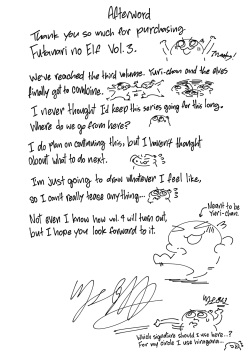 Afterword
Thank you so much for purchasing
Futanari no Elf Vol. 3.
We've reached the third volume. Yuri-chan and the elves
finally got to combine.
I never thought I'd keep this series going for this long.
Where do we go from here?
I do plan on continuing this, but I haven't thought
about what to do next.
I'm just going to draw whatever I feel like,
so I can't really tease anything...
Not even I know how vol. 4 will turn out,
but I hope you look forward to it.
Meant to be
Yuri-chan
Which signature should I use here...?
For my circle I use hiragana...